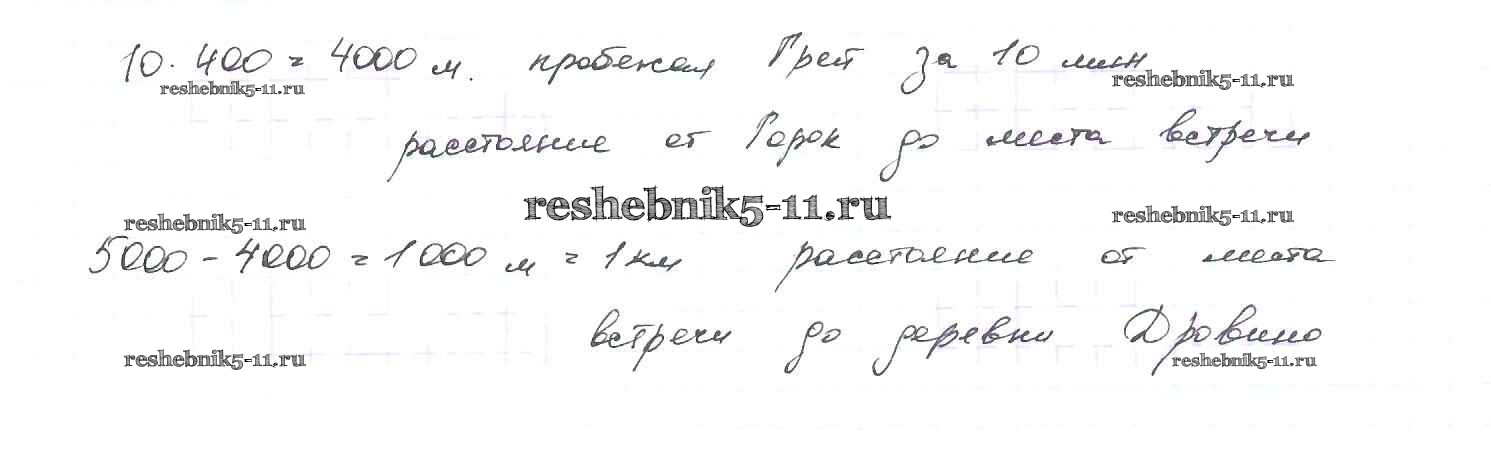 10 · 400 = 4000 м. пробежал Грей за 10 мин
reshebnik5-11.ru reshebnik5-11.ru
расстояние от Горок до места встречи
reshebnik5-11.ru
reshebnik5-11.ru reshebnik5-11.ru
5000 - 4000 = 1000 м = 1 км расстояние от места
встречи до деревни Дровино
reshebnik5-11.ru reshebnik5-11.ru